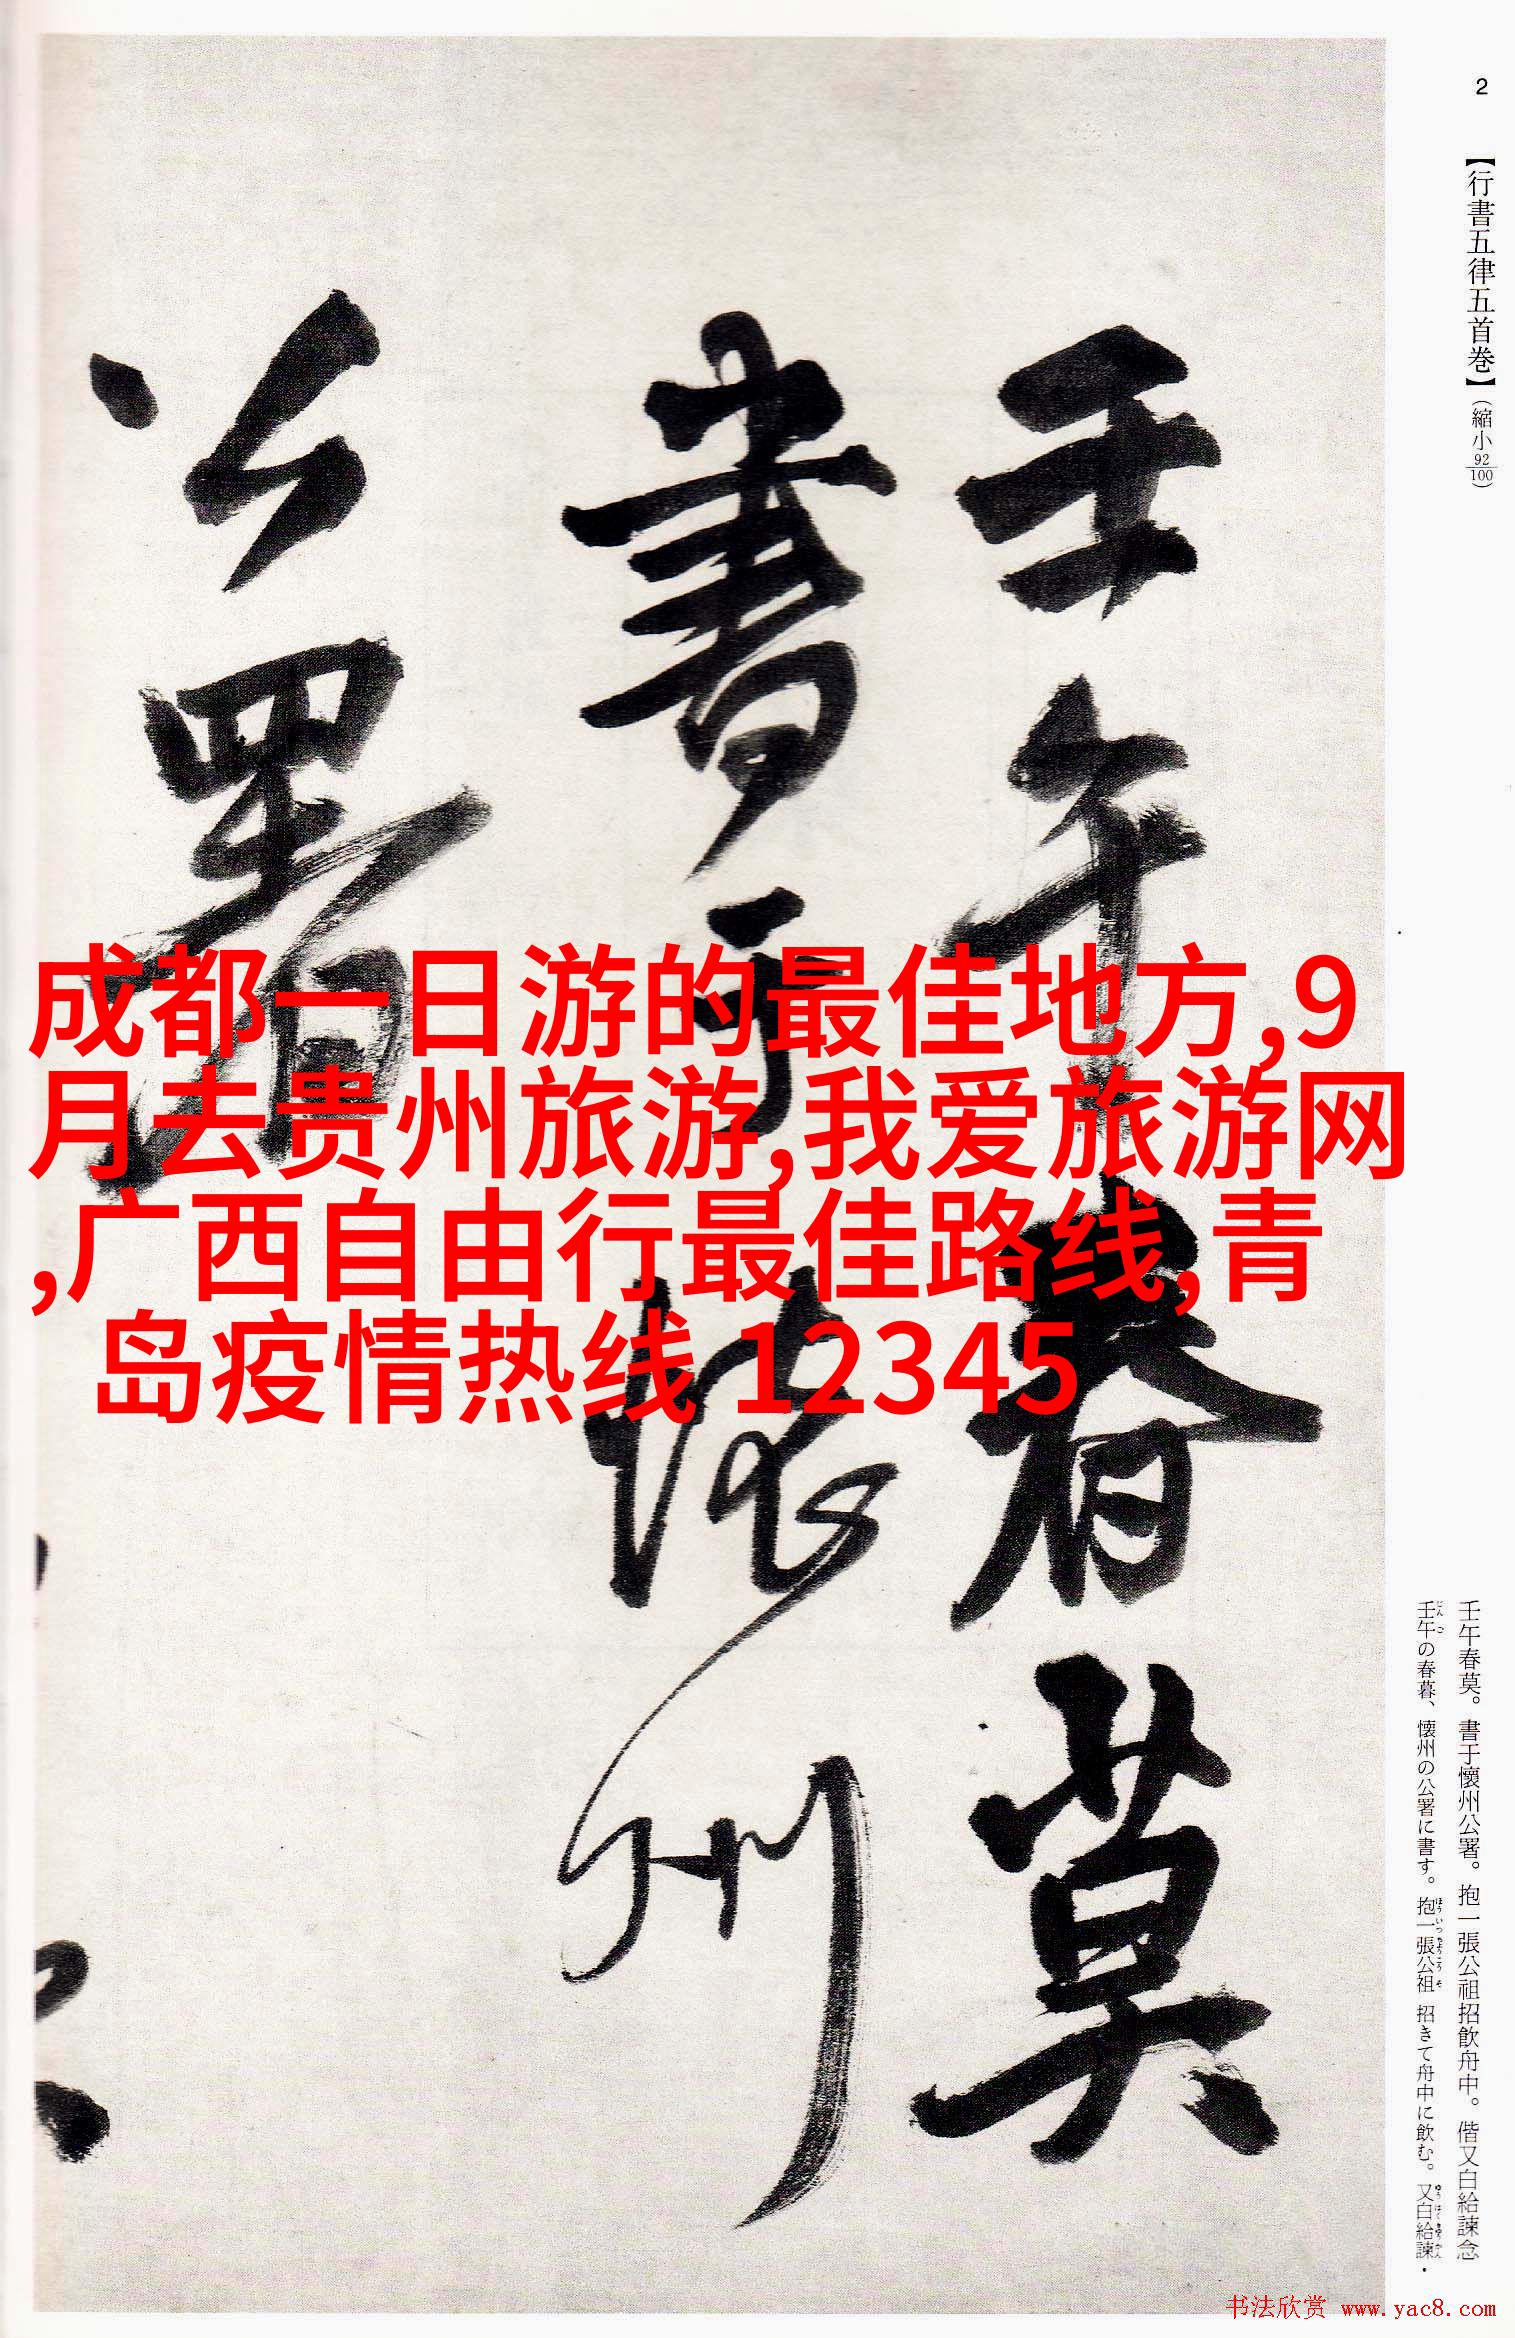 2
【行書五律五首巻】(縮小92/100)
壬午春莫
書于懐州
公署
成都一日游的最佳地方,9
月去贵州旅游,我爱旅游网
,广西自由行最佳路线,青
岛疫情热线 12345
壬午春莫。書于懷州公署。抱一張公祖招飮舟中。偕又白給諫念
壬午の春暮、懐州の公署に書す。抱一張公祖 招きて舟中に飮む。又白給諫・
书法欣赏 www.yac8.com